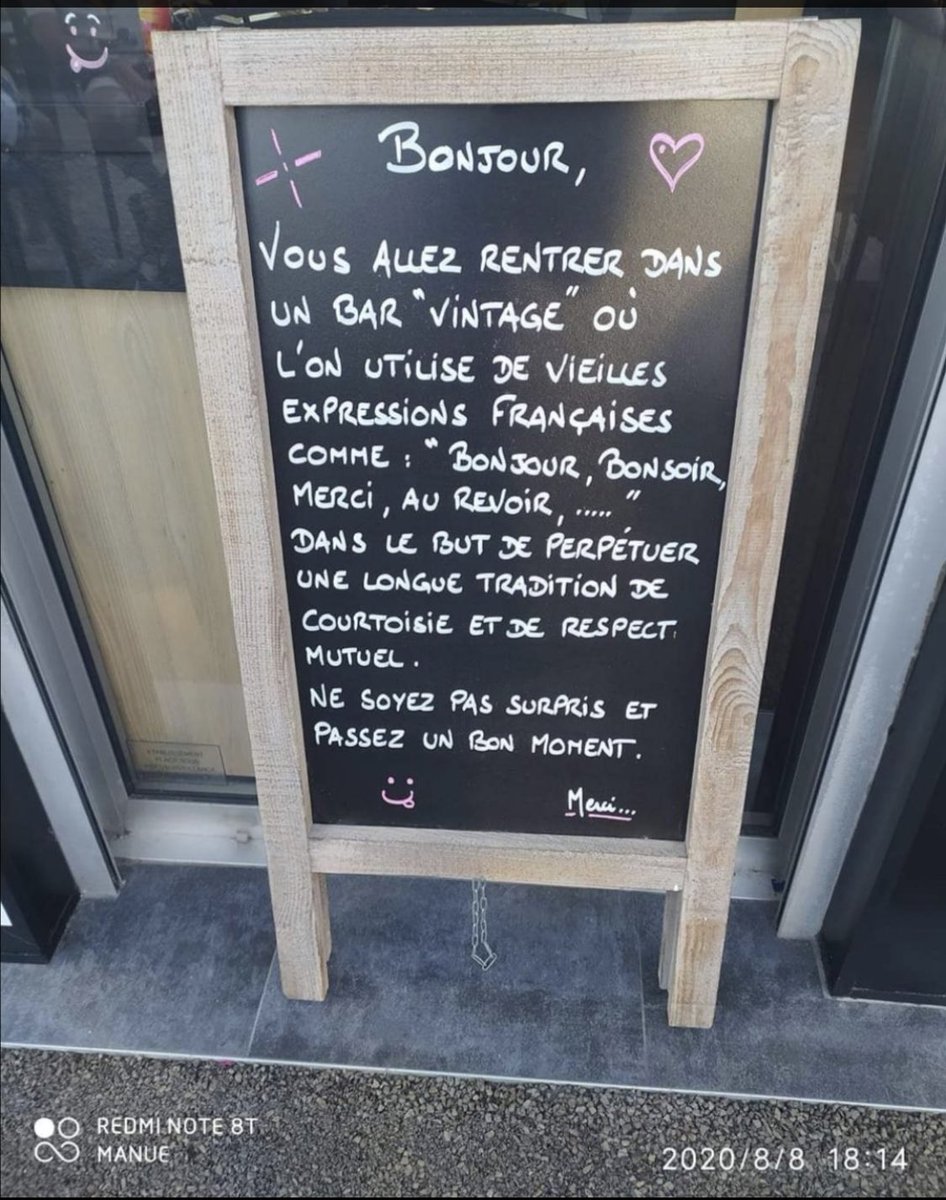 BONJOUR,
VOUS ALLEZ RENTRER DANS
UN BAR "VINTAGE" OÙ
L'ON UTILISE DE VIEILLES
EXPRESSIONS FRANÇAISES
COMME : "BONJOUR, BONSOIR,
MERCI, AU REVOIR, ....."
DANS LE BUT DE PERPÉTUER
UNE LONGUE TRADITION DE
COURTOISIE ET DE RESPECT
MUTUEL.
NE SOYEZ PAS SURPRIS ET
PASSEZ UN BON MOMENT.
Merci...
ETABLISSEMENT
REDMI NOTE 8T
MANUE
2020/8/8 18:14